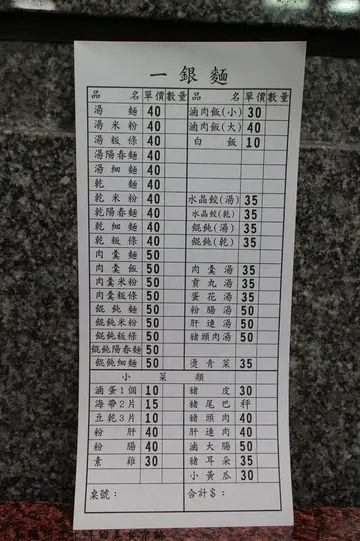 一銀麵
品名 單價 數量 品名 單價 數量
湯麵 40 滷肉飯(小) 30
湯米粉 40 滷肉飯(大) 40
湯粄條 40 白飯 10
湯陽春麵 40
湯細麵 40
乾麵 40
乾米粉 40 水晶餃(湯) 35
乾陽春麵 40 水晶餃(乾) 35
乾細麵 40 餛飩(湯) 35
乾粄條 40 餛飩(乾) 35
肉羹麵 50
肉羹飯 50 肉羹湯 35
肉羹米粉 50 貢丸湯 35
肉羹粄條 50 蛋花湯 35
餛飩麵 50 粉腸湯 50
餛飩米粉 50 肝連湯 50
餛飩粄條 50 豬頭肉湯 50
餛飩陽春麵 50
餛飩細麵 50 燙青菜 35
小菜類
滷蛋1個 10 豬皮 30
海帶2片 15 豬尾巴 秤
豆乾3片 10 豬頭肉 40
粉肝 40 肝連肉 40
粉腸 40 滷大腸 50
素雞 30 豬耳朵 35
小黃瓜 30
桌號： 合計$：